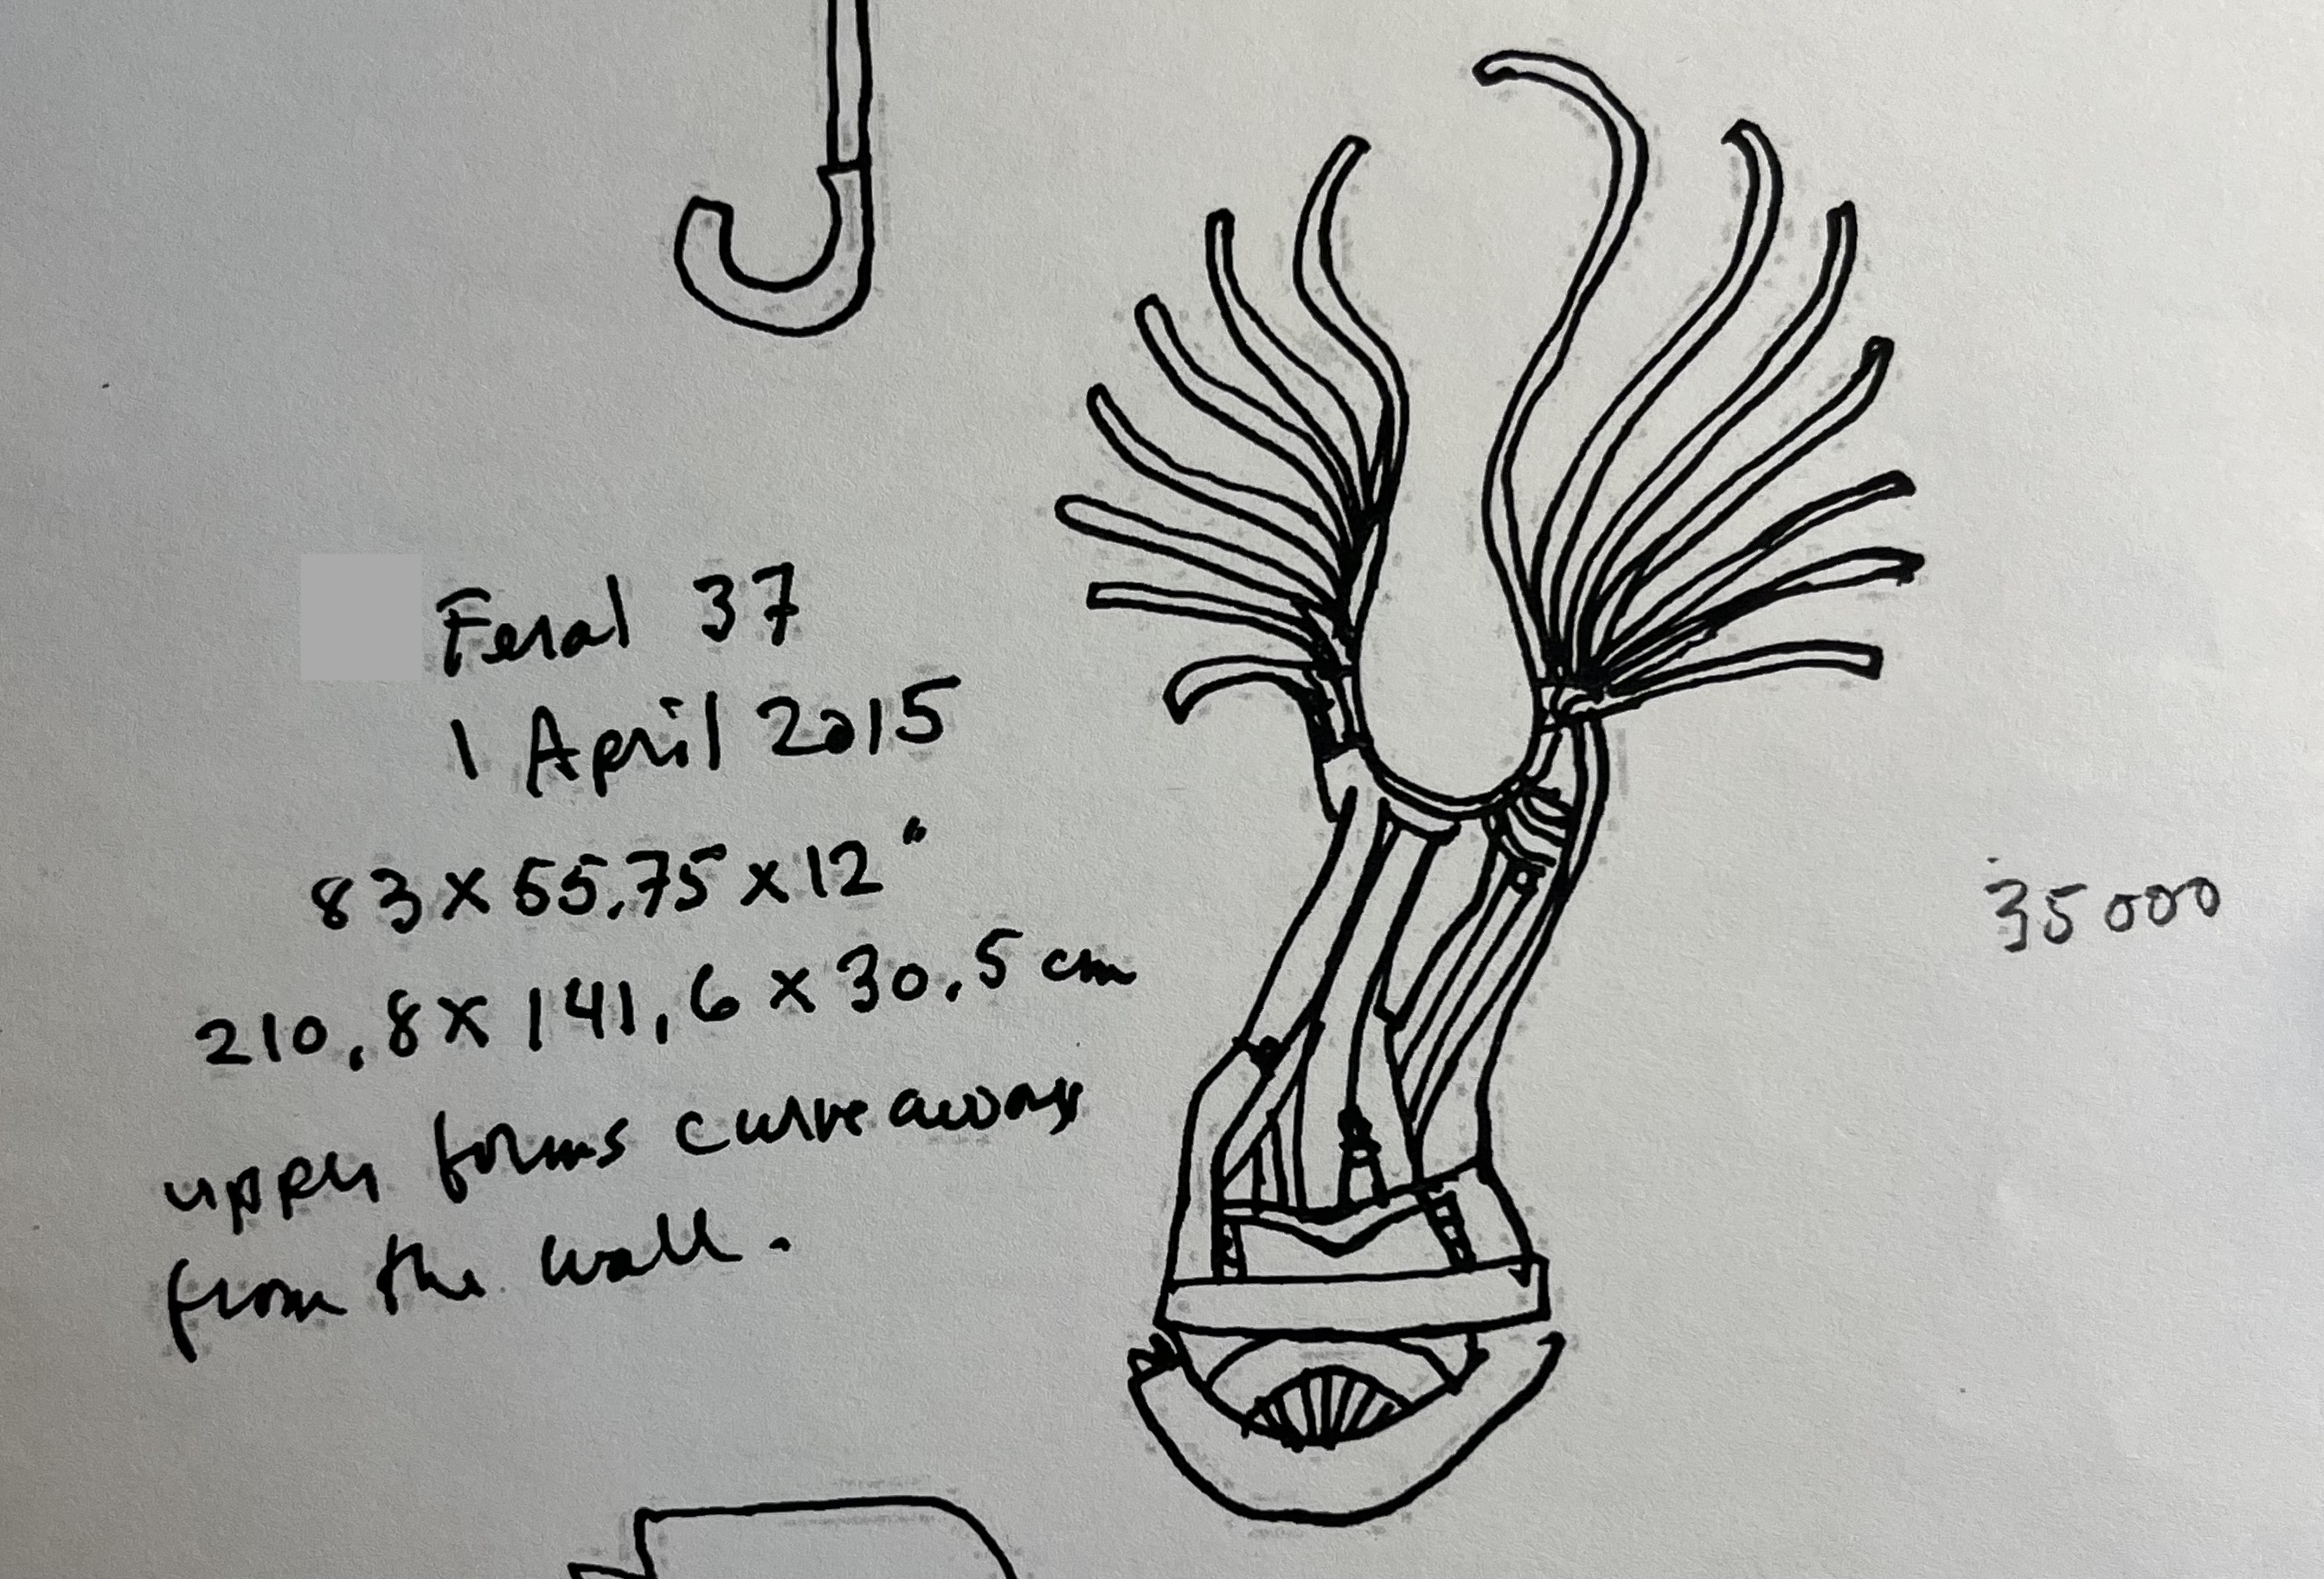 Feral 37
1 April 2015
83 x 55.75 x 12"
210.8 x 141.6 x 30.5 cm
upper forms curve away
from the wall.
35000